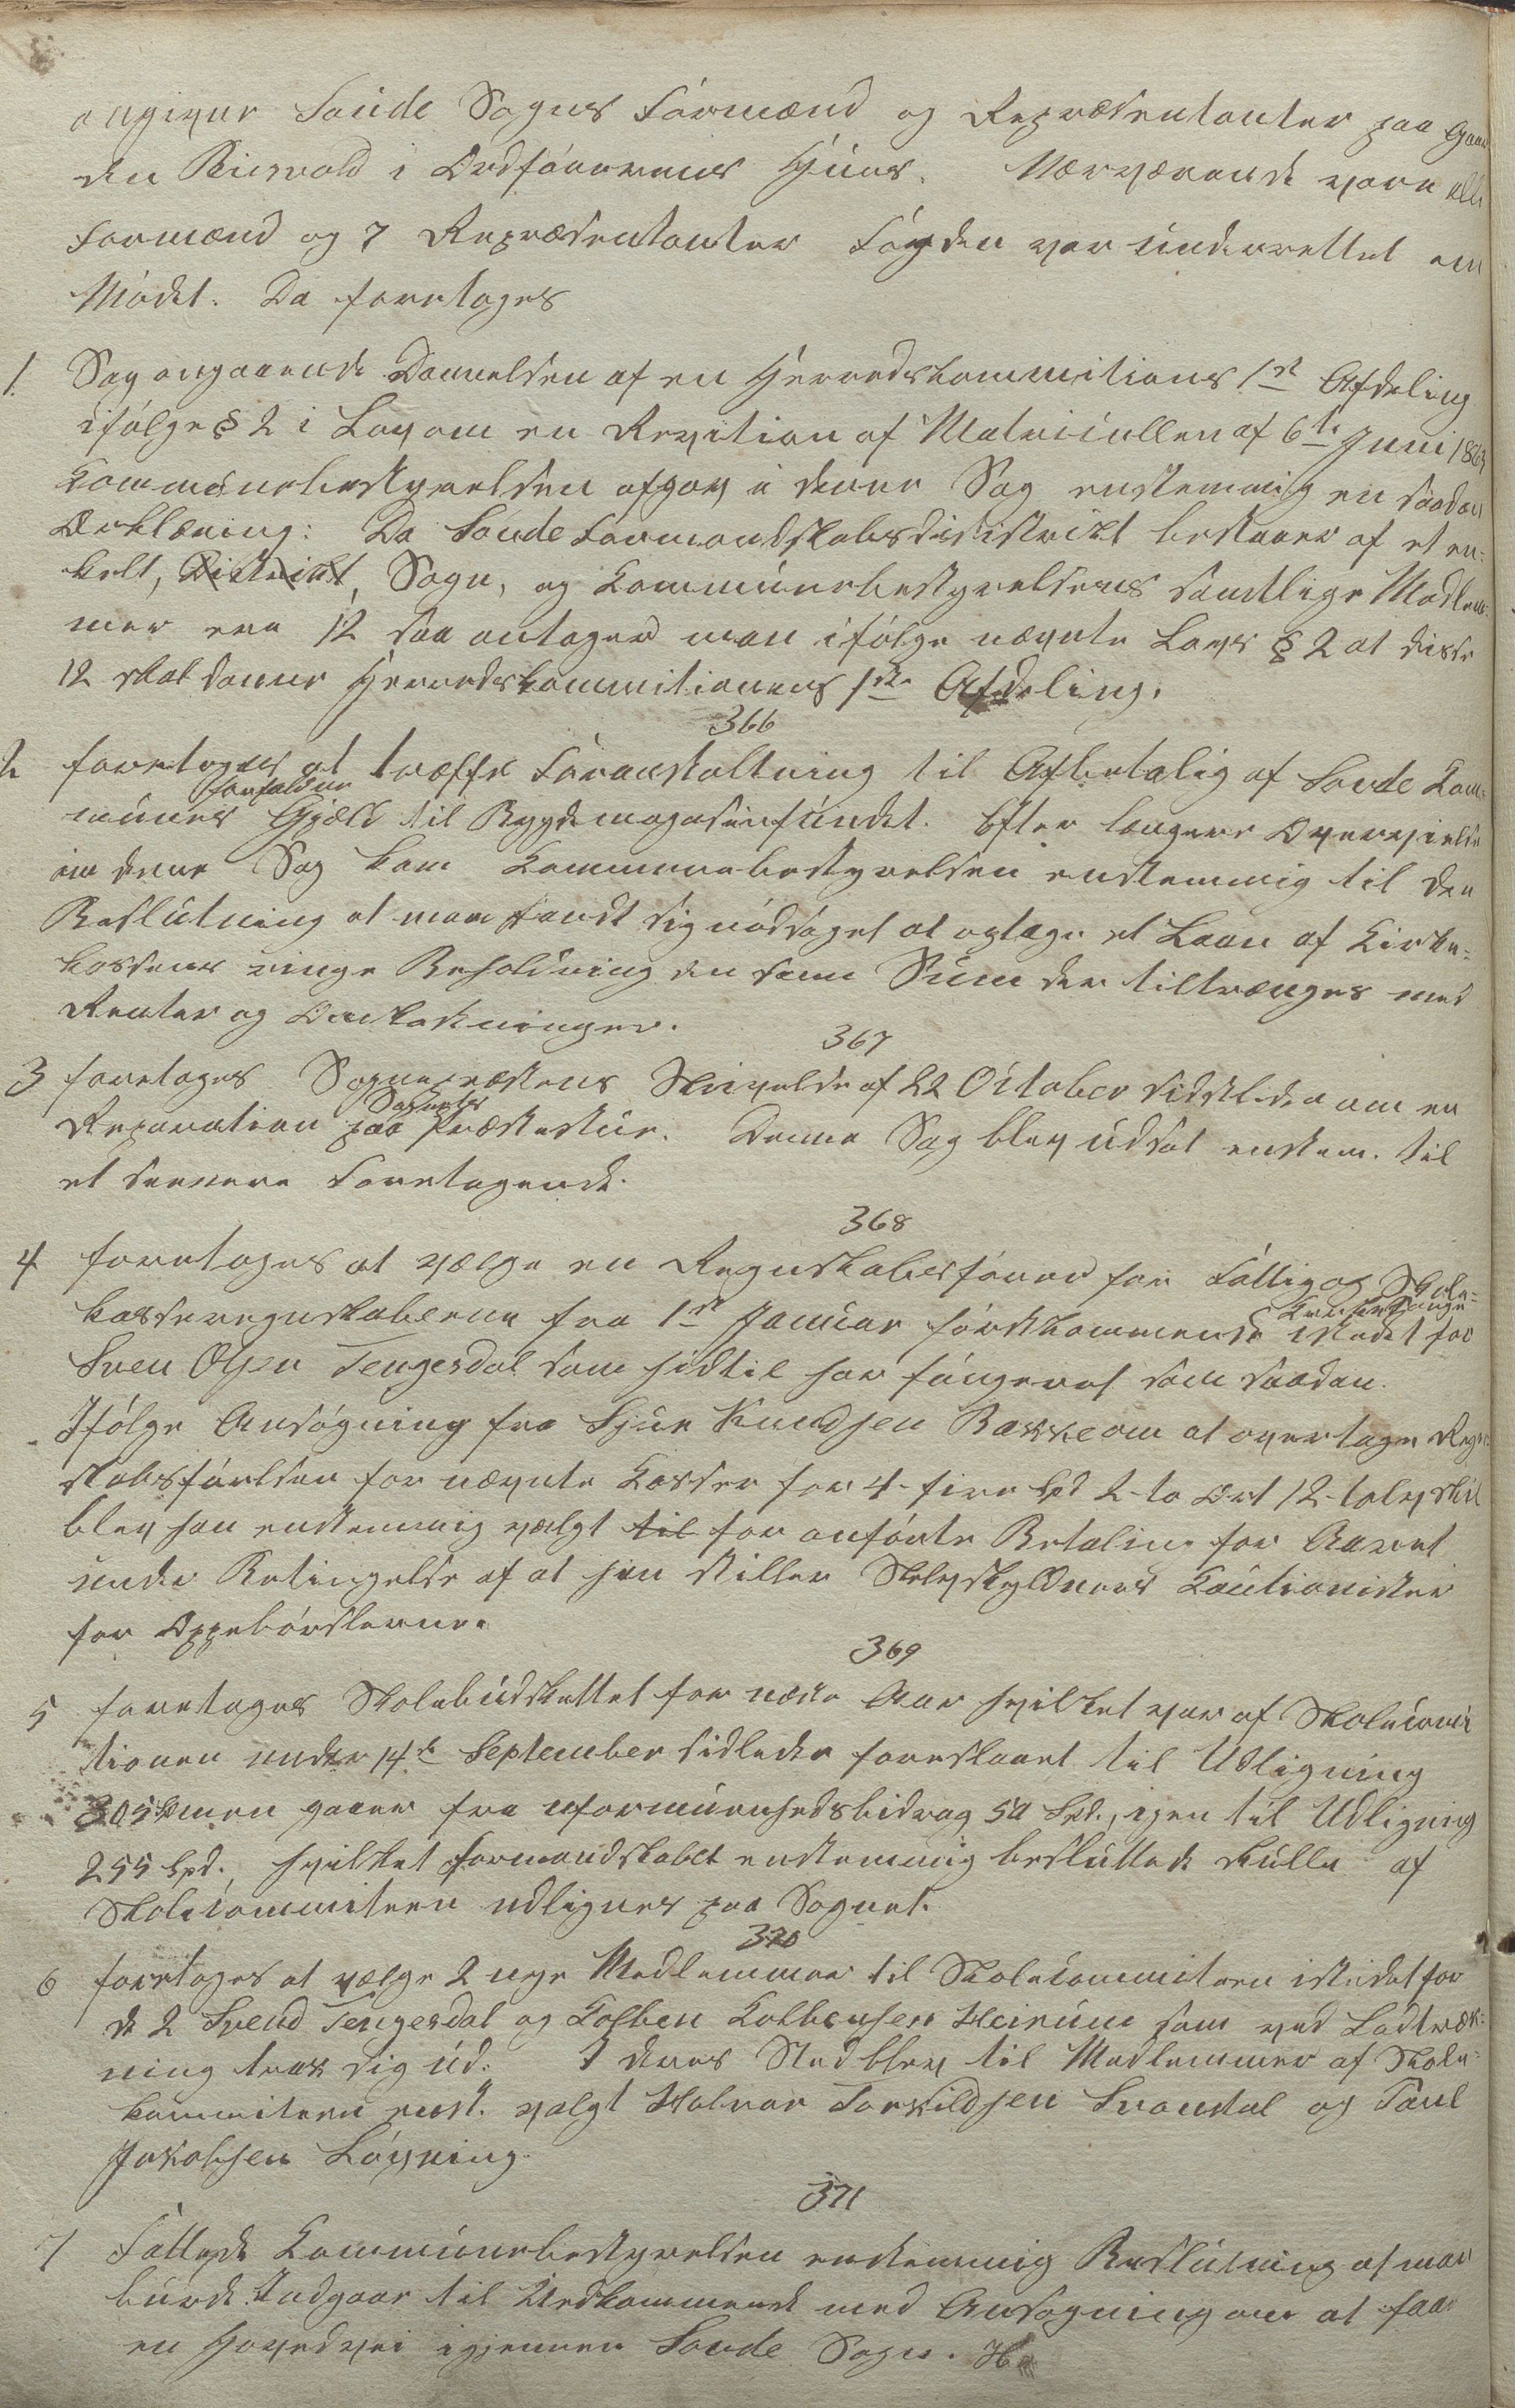 angiver Saude Sogns Formænd og Repræsentanter paa Gaar
den Birivold i Ordførerens Huus. Nærværende vare alle
Formænd og 7 Repræsentanter Fogden var underrettet om
Mødet. Da foretoges
1. Sag angaaende Dannelsen af en Herredskommitions 1st Afdeling
ifølge § 2 i Lov om en Revition af Matriculen af 6te Juni 1863
Kommunebestyrelsen afgav i denne Sag enstemmig en saadan
Erklæring: Da Saude Formandskabsdistrikt bestaaer af et en-
kelt, Distrikt, Sogn, og Kommunebestyrelsens samtlige Medlem-
mer ere 12 saa antager man ifølge nævnte Lovs § 2 at disse
12 skal danne Herredskommitionens 1ste Afdeling.
366
2 foretoges at træffe Foranstaltning til Afbetalig af Saude Kom-
forfaldne
munes Gjæld til Bygdemagasinfundet. Efter længere Overveielse
i denne Sag kom Kommunebestyrelsen enstemmig til den
Beslutning at man fandt sig nødsaget at optage et Laan af Kirke-
kassens ringe Beholdning den Sum der tiltrænges med
Renter og Omkostninger.
367
3 foretoges Sognepræstens Skrivelse af 22 October sidstleden om en
Sognets
Reparation paa Præstestue. Denne Sag blev udsat enstem. til
et senere Foretagende.
368
4 foretoges at vælge en Regnskabsfører for Fattig og Skole-
kasseregnskaberne fra 1st Januar førstkommende istedet for
Sven Olsen Tengesdal som hidtil har fungeret som saadan.
Ifølge Ansøgning fra Sjur Knudsen Bakke om at overtage Regn-
skabsførelsen for nævnte Kasser for 4-fire Spd 2-to Ort 12-tolv Skil
blev han enstemmig valgt til for anførte Betaling for Aaret
under Betingelse af at han stiller Selvskyldneres Kautionister
for Oppebørslerne.
369
5 foretoges Skolebudskettet for næste Aar hvilket var af Skolecomi
tionen under 14de September sidleden foreslaaet til Udligning
305 men gaaer fra uformuenhedsbidrag 50 Spd., igjen til Udligning
255 Spd., hvilket Formandskabet enstemmig besluttede skulle af
Skolecommiteen udlignes paa Sognet.
370
6 foretoges at vælge 2 nye Medlemmer til Skolecommiteen istedet for
de 2 Svend Tengesdal og Kolben Kolbensen Heirum som ved Lodtræk-
ning træk sig ud. I deres Sted blev til Medlemmer af Skole-
kommiteen enst. valgt Halvor Torkildsen Svandal og Paul
Jakobsen Løyning.
371
7 Fattede Kommunebestyrelsen enstemmig Beslutning at man
burde Indgaar til Vedkommende med Ansøgning om at faae
en Hovedvei igjennem Saude Sogn.